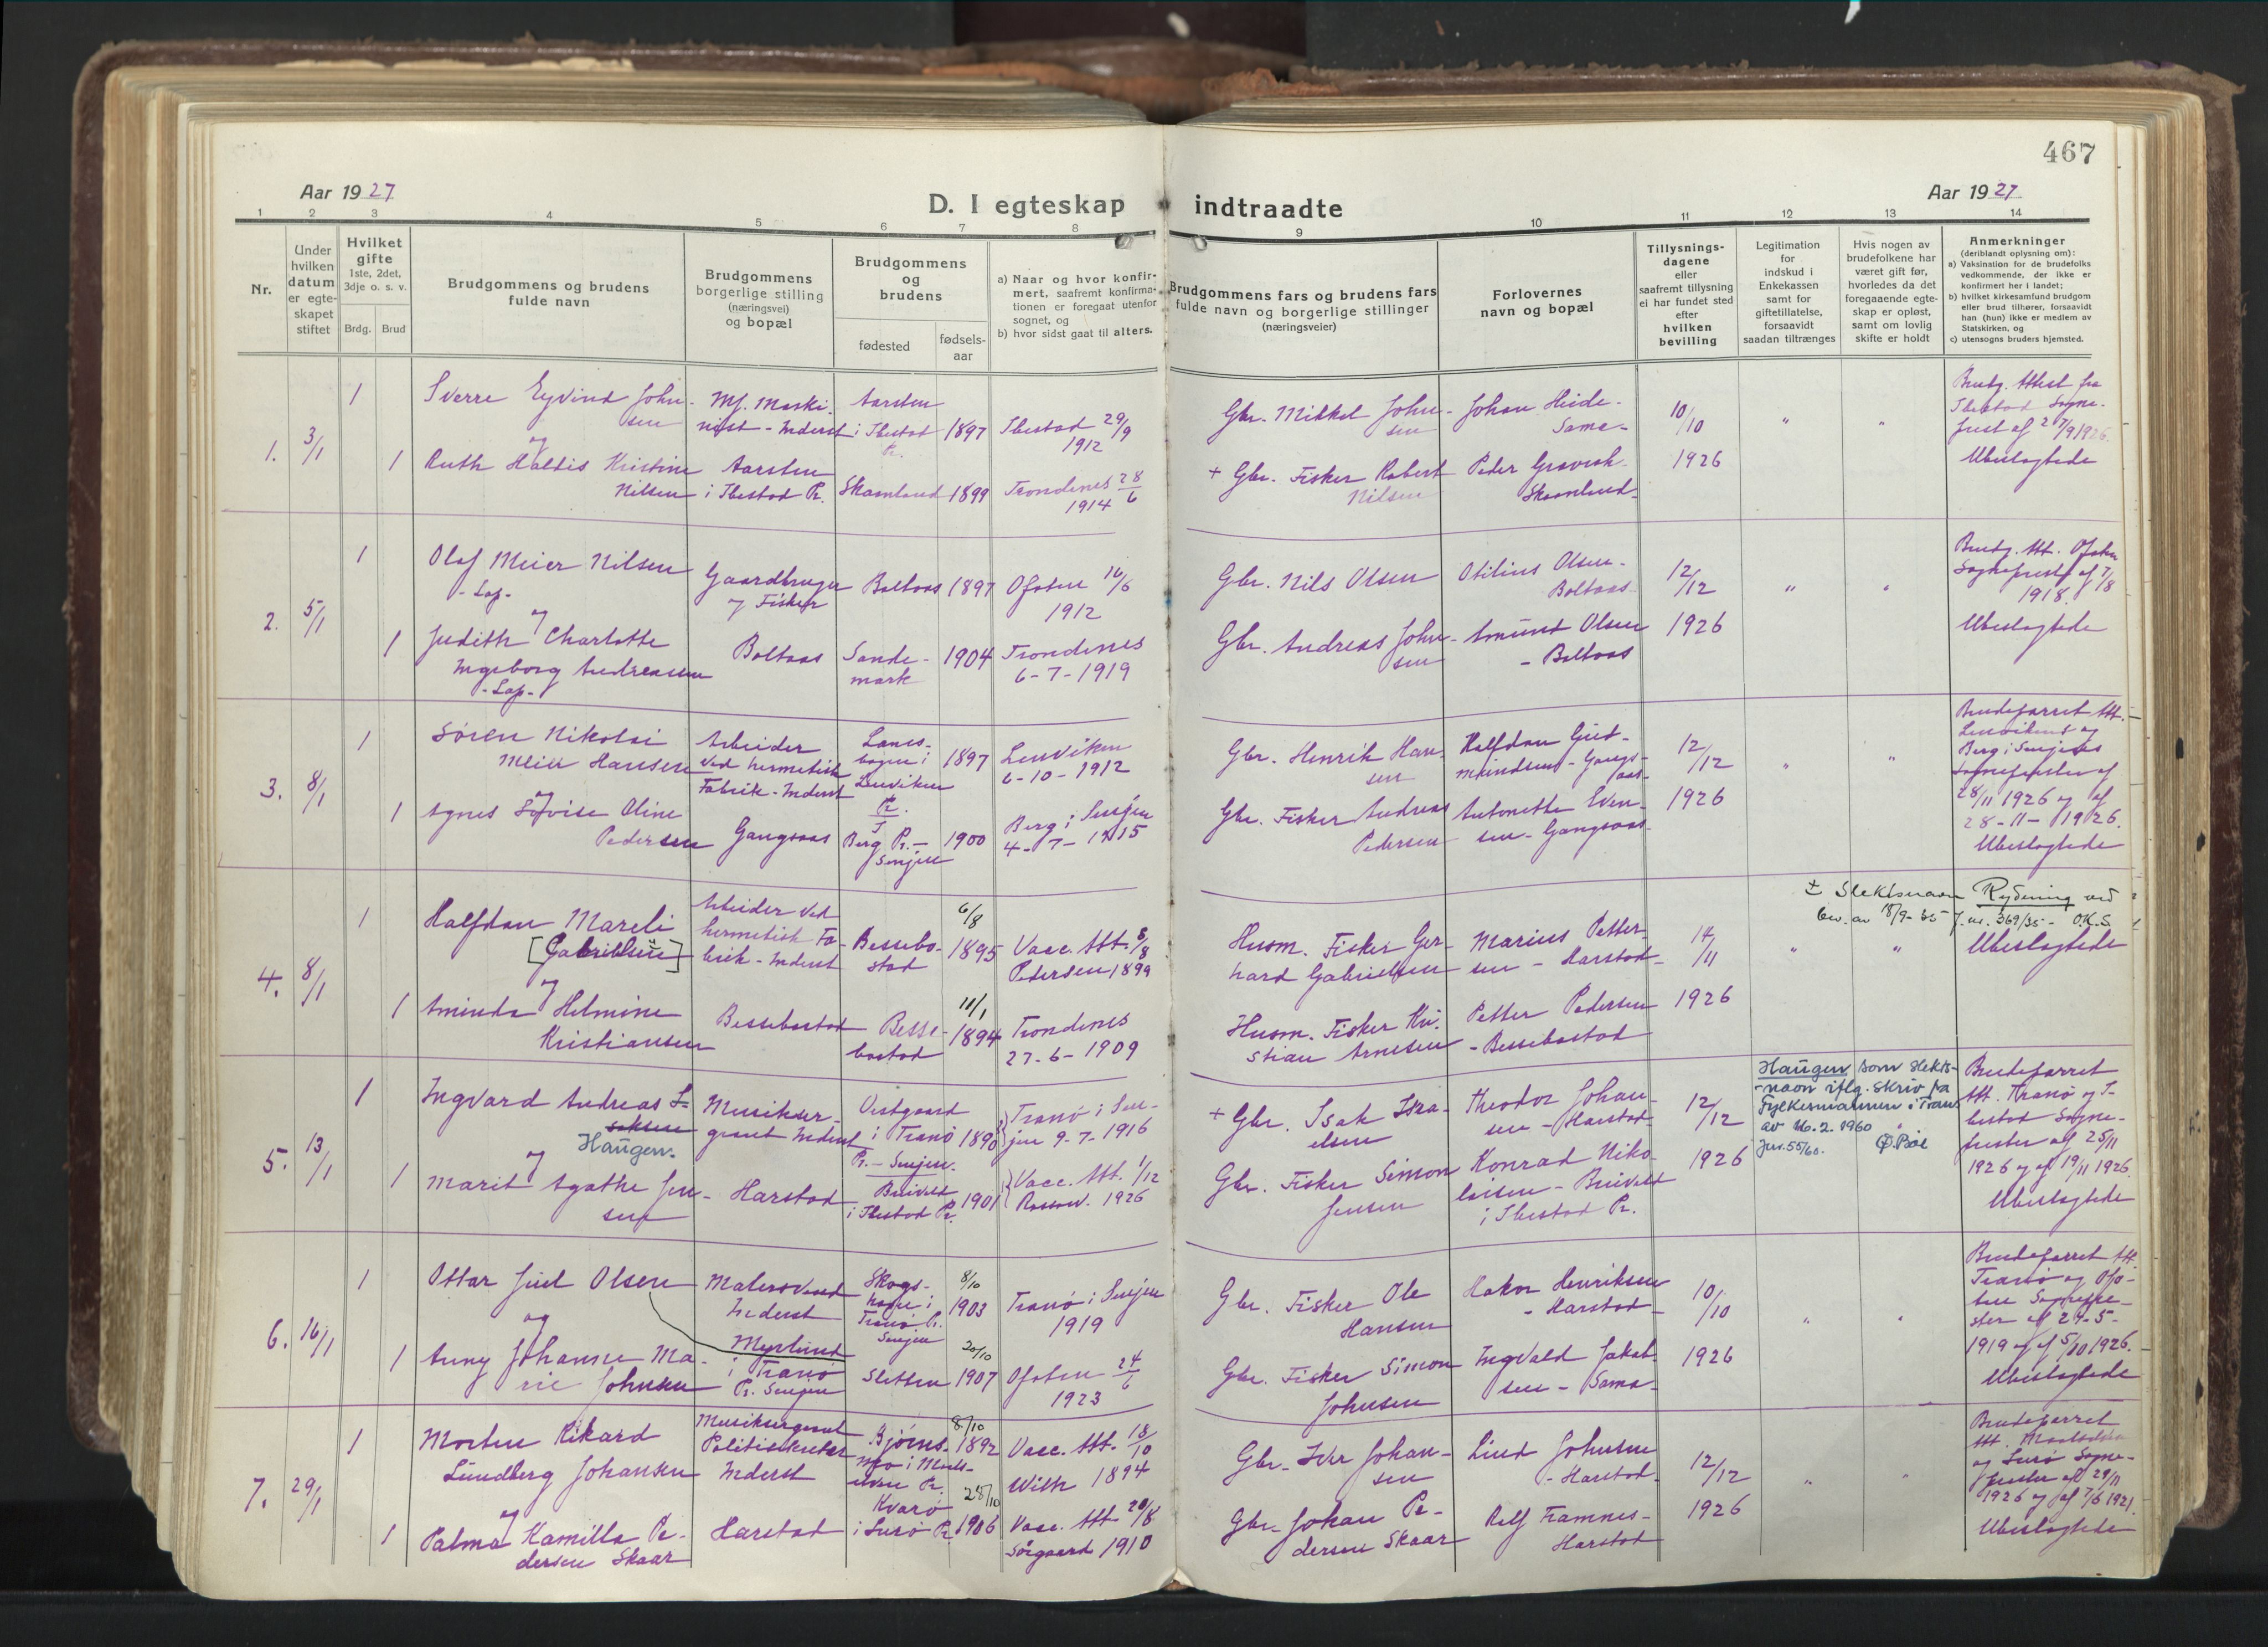 467
Aar 1927
D. I egteskap indtraadte
Aar 1927
1 2 3 4 5 6 7 8 9 10 11 12 13 14
Nr.
Under hvilken datum er egteskapet stiftet
Hvilket gifte
1ste, 2det, 3dje o. s. v.
Brdg. Brud
Brudgommens og brudens fulde navn
Brudgommens borgerlige stilling (næringsvei) og bopæl
Brudgommens og brudens
fødested
fødsels-aar
a) Naar og hvor konfirmert, saafremt konfirmationen er foregaat utenfor sognet, og
b) hvor sidst gaat til alters.
Brudgommens fars og brudens fars fulde navn og borgerlige stillinger (næringsveier)
Forlovernes navn og bopæl
Tillysningsdagene eller saafremt tillysning ei har fundet sted efter hvilken bevilling
Legitimation for indskud i Enkekassen samt for giftetillatelse, forsaavidt saadan tiltrænges
Hvis nogen av brudefolkene har været gift før, hvorledes da det foregaaende egteskap er opløst, samt om lovlig skifte er holdt
Anmerkninger (deriblandt oplysning om):
a) Vaksination for de brudefolks vedkommende, der ikke er konfirmert her i landet;
b) hvilket kirkesamfund brudgom eller brud tilhører, forsaavidt han (hun) ikke er medlem av Statskirken, og
c) utensogns bruders hjemsted.
1. 3/1
1 Sverre Eyvind Johnsen
Mf. Maskinist - Inderst
Aarsten i Ibestad Pr.
1897
Ibestad 29/9 1912
Gbr. Mikkel Johnsen
Johan Heide - Sama -
10/10 1926
" "
Brudg. Attest fra Ibestad Sogneprest af 27/9 1926.
Ubeslegtede
og
1 Ruth Haldis Kristine Nilsen
Aarsten i Ibestad Pr.
Skaanland
1899
Trondenes 28/6 1914
+ Gbr. Fisker Robert Nilsen
Peder Gravrok - Skaanland -
2. 5/1
1 Olaf Meier Nilsen
- Lap -
Gaardbruger og Fisker
Boltaas
1897
Ofoten 16/6 1912
Gbr. Nils Olsen
Otilius Olsen - Boltaas
12/12 1926
" "
Brudg. Att. Ofoten Sogneprest af 7/8 1918.
Ubeslegtede
og
1 Judith Charlotte Ingeborg Andreassen
- Lap -
Boltaas
Sandemark
1904
Trondenes 6-7-1919
Gbr. Andreas Johnsen
Amund Olsen - Boltaas
3. 8/1
1 Søren Nikolai Meier Hansen
Arbeider ved hermetisk Fabrik - Inderst
i Lenviken Pr.
1897
Lenviken 6-10-1912
Gbr. Henrik Hansen
Halfdan Gudmundsen - Gangsaas -
12/12 1926
" "
Brudeparret Att. Lenvikens og Berg i Senjens Sogneprester af 28/11 1926 og af 28-11-1926.
Ubeslegtede
og
1 Agnes Lovise Oline Pedersen
Gangsaas
Berg Pr. - Senjen
1900
Berg i Senjen 4-7-1915
Gbr. Fisker Andreas Pedersen
Antonette Evensen - Gangsaas
4. 8/1
1 Halfdan Mareli [Gabrielsen]
Arbeider ved hermetisk Fabrik - Inderst
Bessebostad
6/8 1895
Vacc. Att. 8/8 Pedersen 1899
Husm. Fisker Gerhard Gabrielsen
Marius Pettersen - Harstad -
14/11 1926
" "
± Slektsnavn Rydening ved bev. av 18/9-35 J. nr. 369/35 - O.K.S.
Ubeslegtede
og
1 Aminda Helmine Kristiansen
Bessebostad
Bessebostad
11/1 1894
Trondenes 27-6-1909
Husm. Fisker Kristian Arnesen
Petter Pedersen - Bessebostad
5. 13/1
1 Ingvard Andreas Isaksen
Haugen.
Musikersergeant Inderst
Vestgaard i Tranø Pr. - Senjen.
1890
Tranø i Senjen 9-7-1916
+ Gbr. Isak Israelsen
Theodor Johansen - Harstad -
12/12 1926
Haugen som slektsnavn iflg. skriv fra Fylkesmannen i Troms av 16.2.1960
Jnr. 55/60.
Brudeparret Att. Tranø og Ibestad Sogneprester af 25/11 1926 og af 19/11 1926.
Ubeslegtede
og
1 Marit Agathe Jensen
Harstad
i Ibestad Pr.
1901
Vacc. Att. 1/12 1926
Gbr. Fisker Simon Jensen
Konrad Nikolaisen - i Ibestad Pr.
6. 16/1
1 Ottar Juel Olsen
Malersvend Inderst
Myrlund i Tranø Pr. Senjen
i Tranø Pr. Senjen
8/10 1903
Tranø i Senjen 1919
Gbr. Fisker Ole Hansen
Hakon Henriksen - Harstad -
10/10 1926
" "
Brudeparret Att. Tranø og Ofoten Sogneprester af 24-5-1919 og af 5/10 1926.
Ubeslegtede
og
1 Anny Johanne Marie Johnsen
Sletten
20/10 1907
Ofoten 24/6 1923
Gbr. Fisker Simon Johnsen
Ingvald Jakobsen - Sama -
7. 29/1
1 Morten Rikard Lundberg Johansen
Musiksergeant Inderst
8/10 1892
Vacc. Att. 18/10 With 1894
Gbr. Iver Johansen
Lind Johnsen - Harstad -
12/12 1926
" "
Brudeparret Att. og Lurø Sogneprester af 29/11 1926 og af 7/6 1921.
Ubeslegtede
og
1 Palma Kamilla Pedersen Skaar
Harstad
Kvarø i Lurø Pr.
28/10 1906
Vacc. Att. 20/8 Sørgaard 1910
Gbr. Johan Pedersen Skaar
Rolf Framnes - Harstad